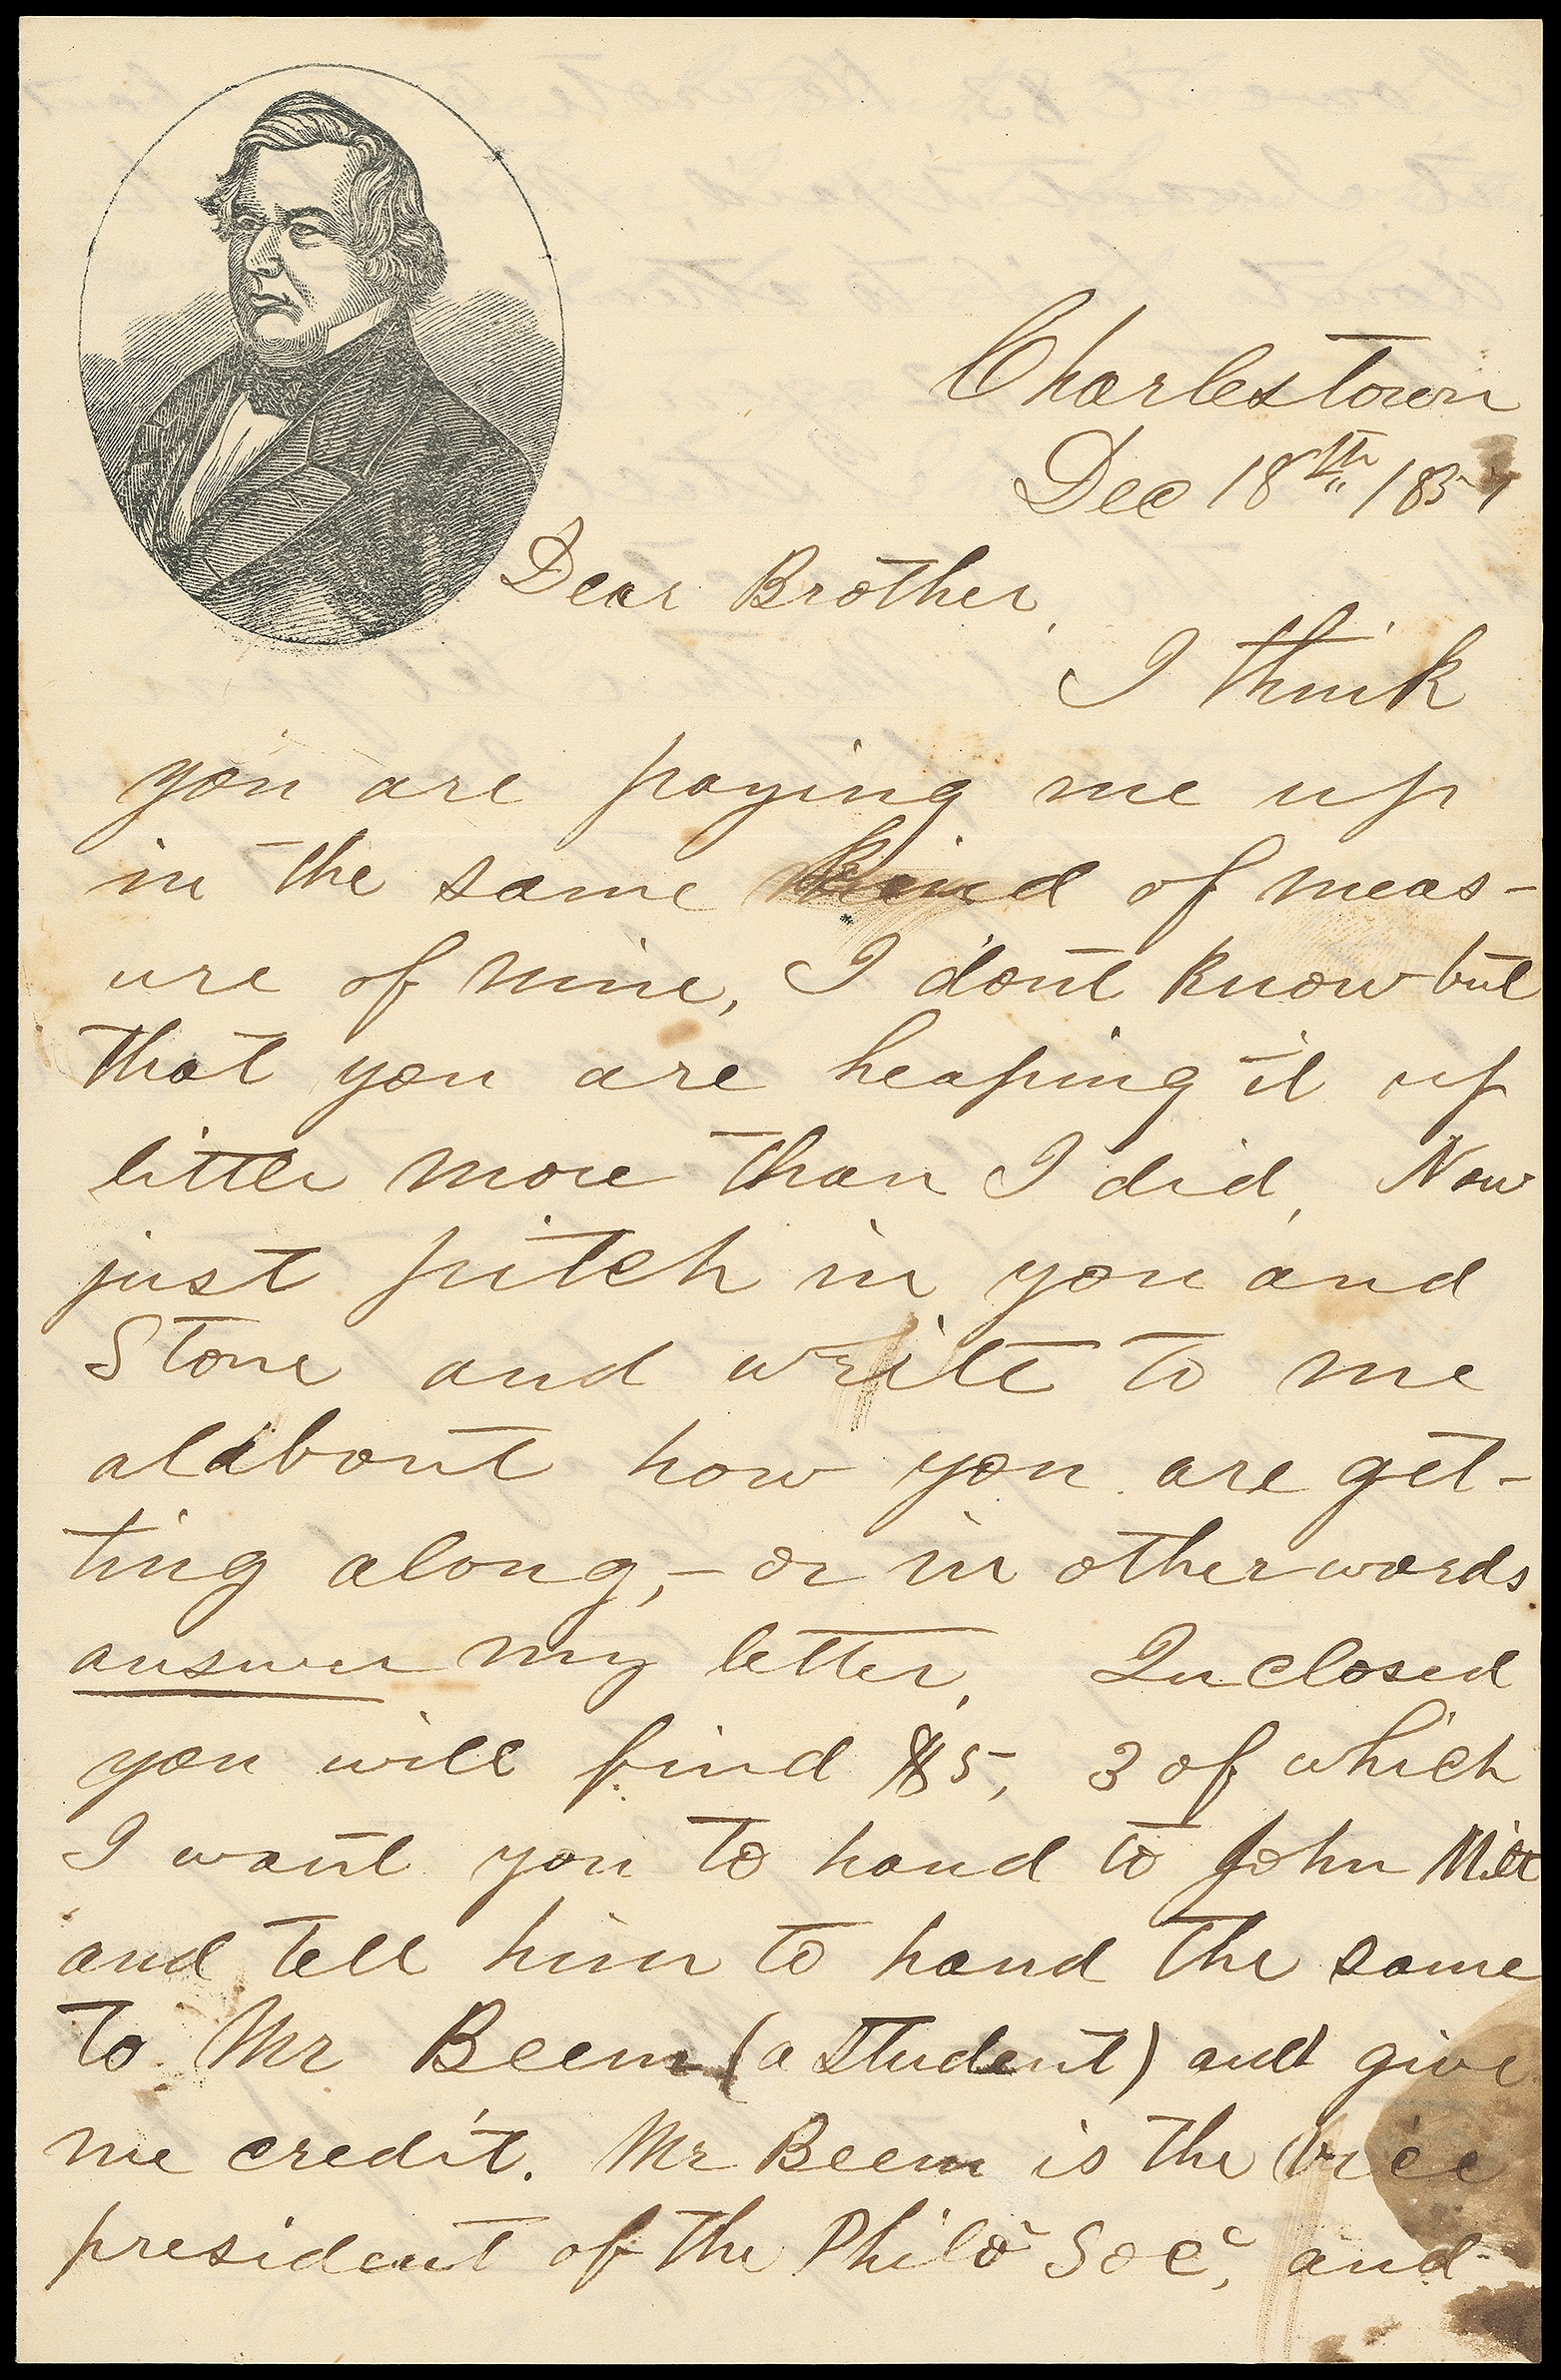 Charlestown
Dec 18th 1857
Dear Brother,
I think
you are paying me up
in the same kind of meas-
ure of mine, I dont know but
that you are heaping it up
littler more than I did, Now
just pitch in you and
Stone and write to me
alabout how you are get-
ting along,- or in other words
answer my letter, Inclosed
you will find $5, 3 of which
I want you to hand to John Milt
and tell him to hand the same
to Mr Beem (a student) and give
me credit. Mr Beem is the vice
president of the Philo Soc, and